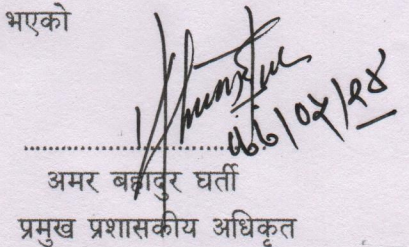 भएको
७६/०५/२४
अमर बहादुर घर्ती
प्रमुख प्रशासकीय अधिकृत